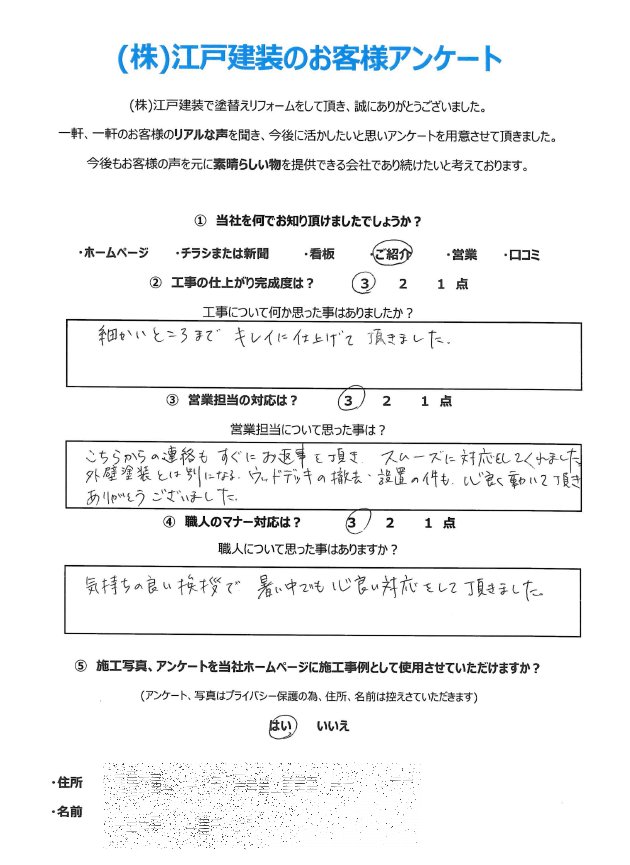 (株)江戸建装のお客様アンケート
(株)江戸建装で塗替えリフォームをして頂き、誠にありがとうございました。
一軒、一軒のお客様のリアルな声を聞き、今後に活かしたいと思いアンケートを用意させて頂きました。
今後もお客様の声を元に素晴らしい物を提供できる会社であり続けたいと考えております。
① 当社を何でお知り頂けましたでしょうか？
・ホームページ ・チラシまたは新聞 ・看板 ・ご紹介 ・営業 ・口コミ
② 工事の仕上がり完成度は？ 3 2 1 点
工事について何か思った事はありましたか？
細かいところまで キレイに仕上げて 頂きました。
③ 営業担当の対応は？ 3 2 1 点
営業担当について思った事は？
こちらからの連絡も すぐに お返事を頂き スムーズに対応をしてくれました。
外壁塗装とは別になる、ウッドデッキの撤去・設置の件も、心良く動いて頂き
ありがとうございました。
④ 職人のマナー対応は？ 3 2 1 点
職人について思った事はありますか？
気持ちの良い挨拶で 暑い中でも 心良い対応をして頂きました。
⑤ 施工写真、アンケートを当社ホームページに施工事例として使用させていただけますか？
(アンケート、写真はプライバシー保護の為、住所、名前は控えさていただきます)
はい いいえ
・住所
・名前